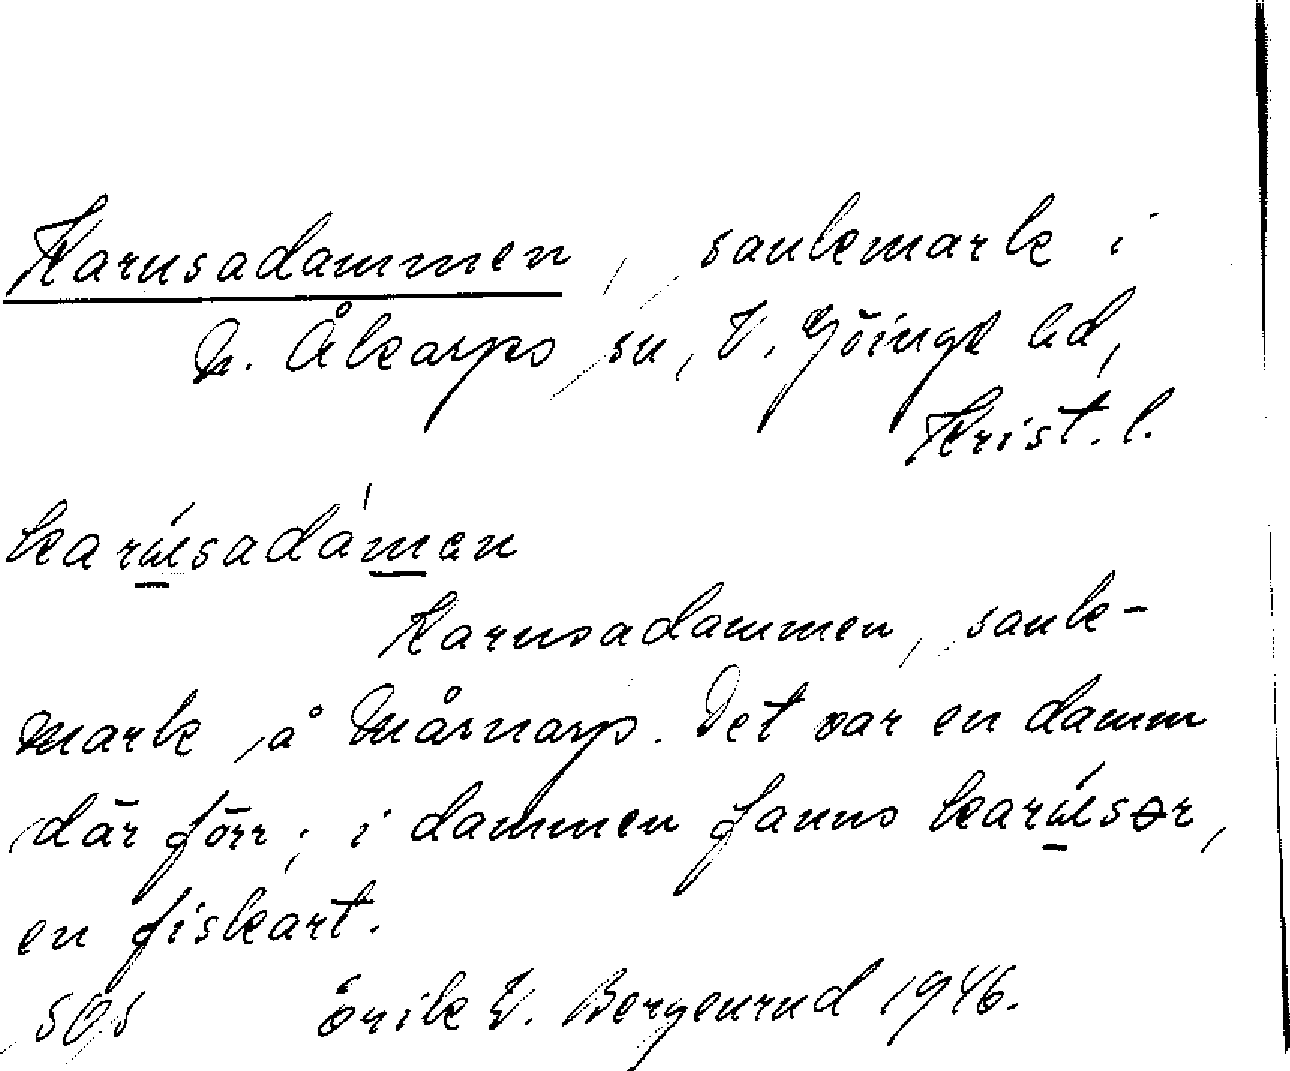 Karusadammen, sankmark i
N. Åkarps sn, V. Göinge hd,
Krist. l.
karu̲´sadá'm̲en
Karusadammen, sank-
mark å Mårnarp. Det var en damm
där förr; i dammen fanns karu̲´sər,
en fiskart.
Erik V. Bergenrud 1946.